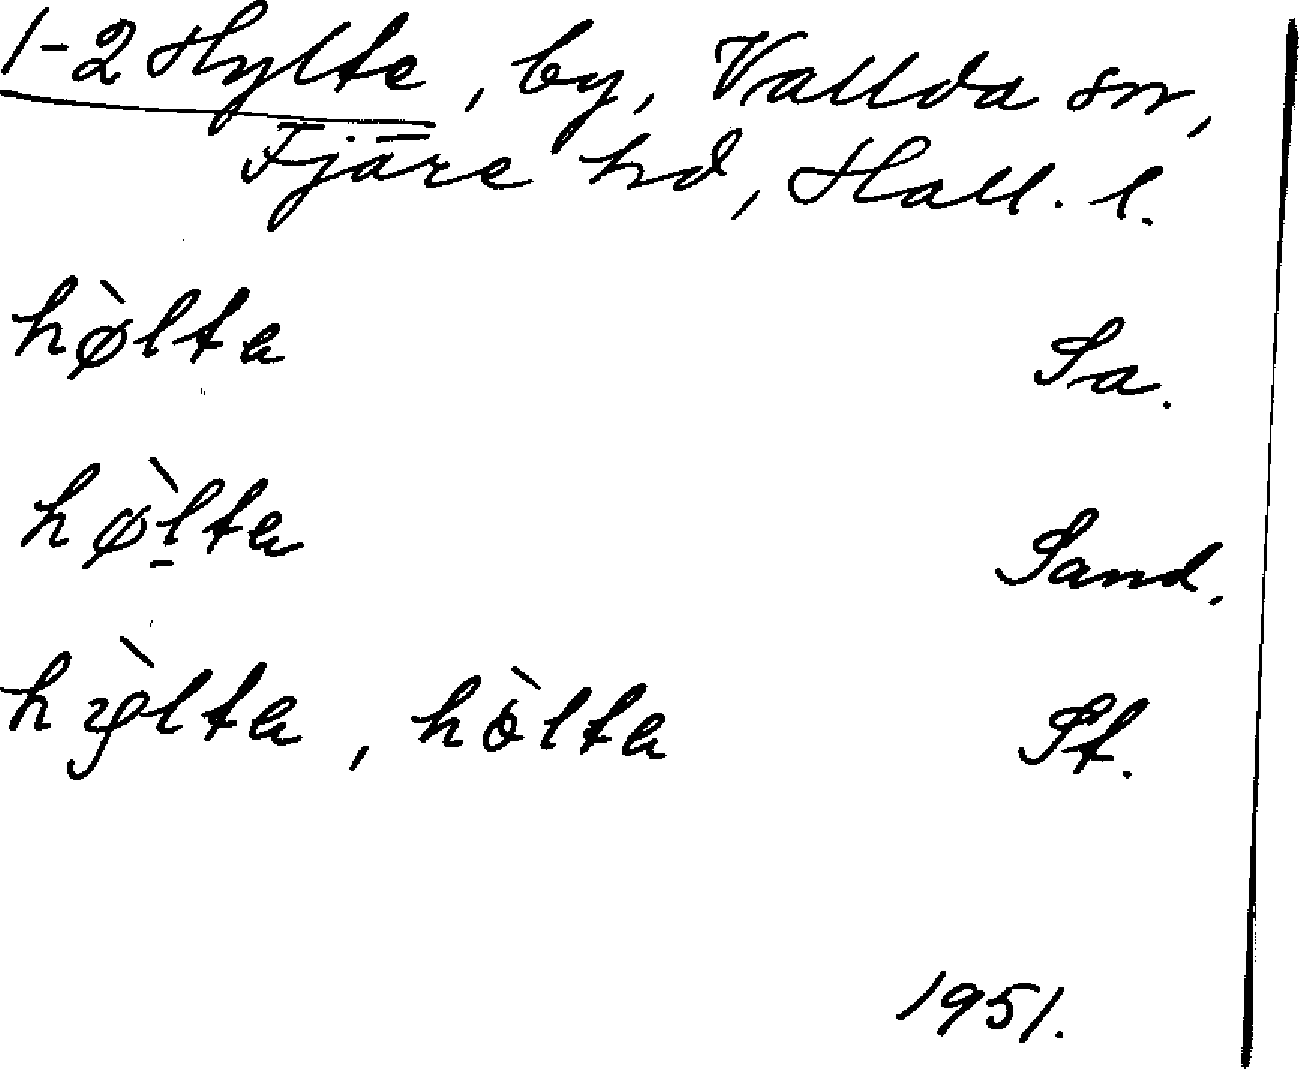 1-2 Hylte, by, Vallda sn,
Fjäre hd, Hall. l.
hø̀lta Sa.
hø̀l̠ta Sand.
hỳ̨lta, hö̀lta St.
1951.